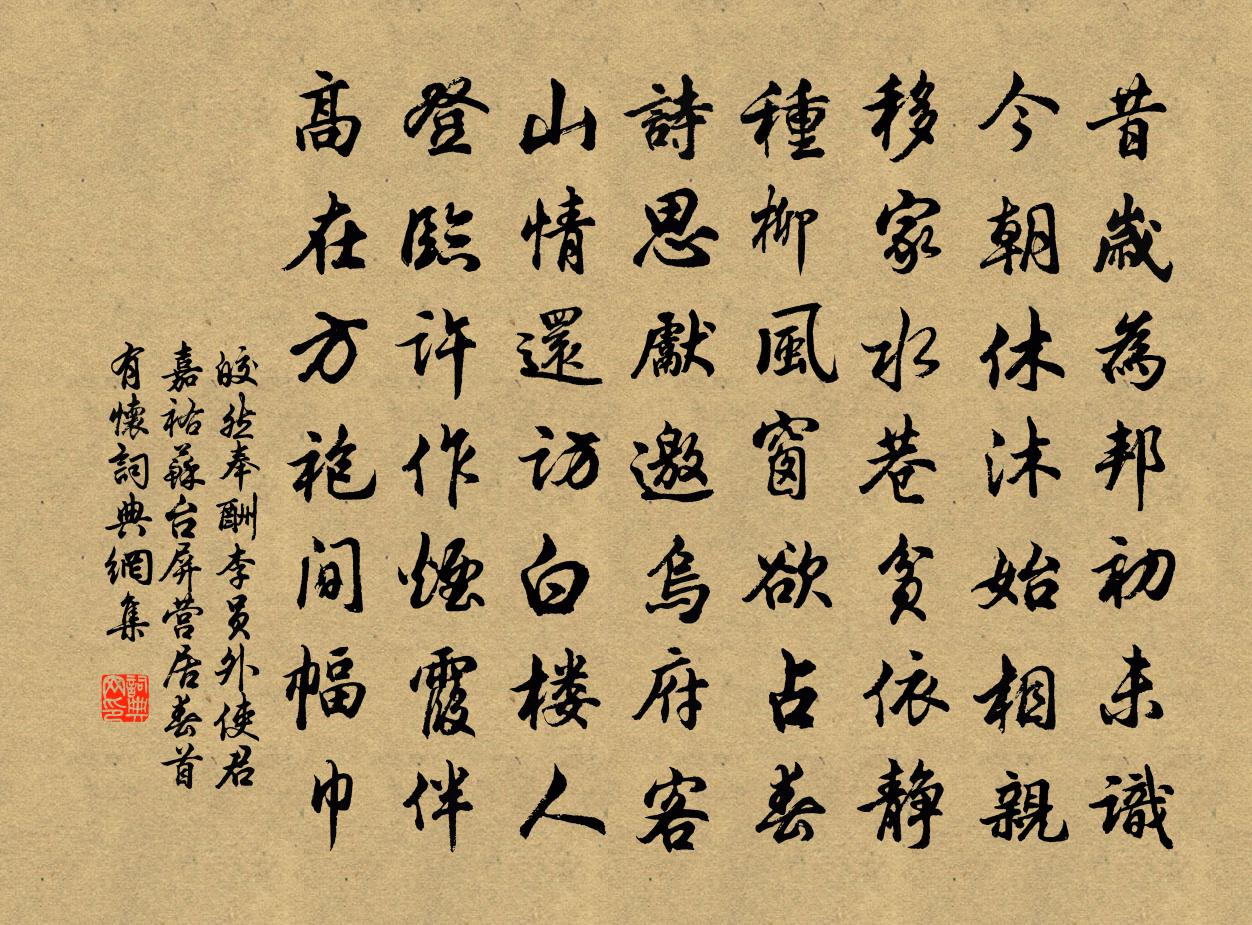 昔歲為邦初未識
今朝休沐始相親
移家水巷貧依靜
種柳風窗欲占春
詩思獻邀烏府客
山情還訪白楼人
登臨許作煙霞伴
高在方袍間幅巾
皎然奉酬李員外使君
嘉祐蘇台屏营居春首
有懷詞典網集
詞典网印